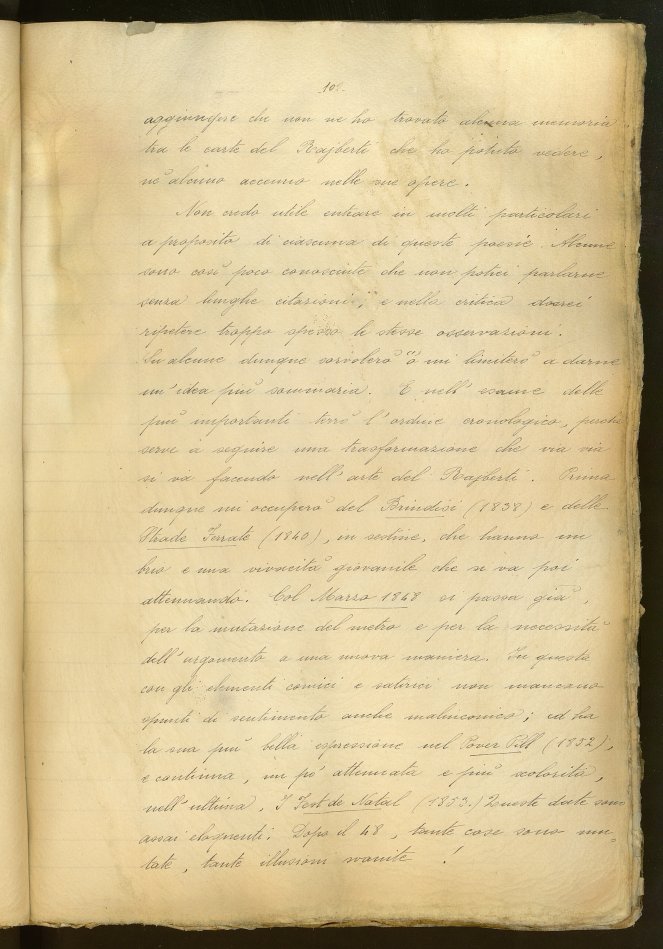 102.
aggiungere che non ne ho trovato alcuna memoria
tra le carte del Rajberti che ho potuto vedere,
nè alcuno accenno nelle sue opere.
Non credo utile entrare in molti particolari
a proposito di ciascuna di queste poesie. Alcune
sono così poco conosciute che non potrei parlarne
senza lunghe citazioni; e nella critica dovrei
ripetere troppo spesso le stesse osservazioni.
Su alcune dunque sorvolerò o mi limiterò a darne
un'idea più sommaria. E nell'esame delle
più importanti terrò l'ordine cronologico, perchè
serve a seguire una trasformazione che via via
si va facendo nell'arte del Rajberti. Prima
dunque mi occuperò del Brindisi (1838) e delle
Strade Ferrate (1840), in sestine, che hanno un
brio e una vivacità giovanile che si va poi
attenuando. Col Marzo 1848 si passa già,
per la mutazione del metro e per la necessità
dell'argomento a una nuova maniera. In questa
con gli elementi comici e satirici non mancano
spunti di sentimento anche malinconico; ed ha
la sua più bella espressione nel Pover Pill (1852),
e continua, un po' attenuata e più scolorita,
nell'ultima, I Fest de Natal (1853.) Queste date sono
assai eloquenti: Dopo il 48, tante cose sono mu=
tate, tante illusioni svanite!